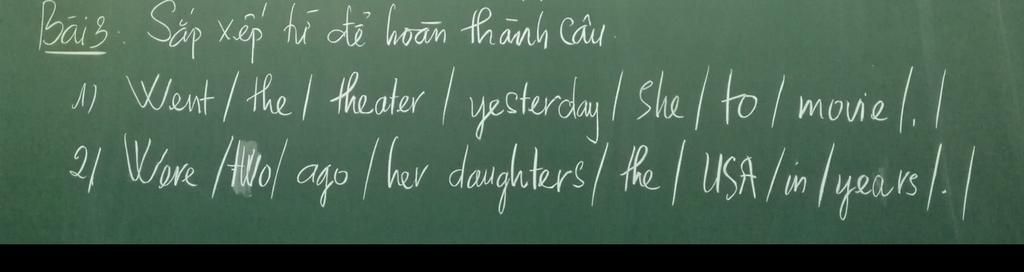 Bài 3: Sắp xếp từ để hoàn thành câu.
1) Went / the / theater / yesterday / She / to / movie / . /
2) Were / two / ago / her daughters / the / USA / in / years / . /